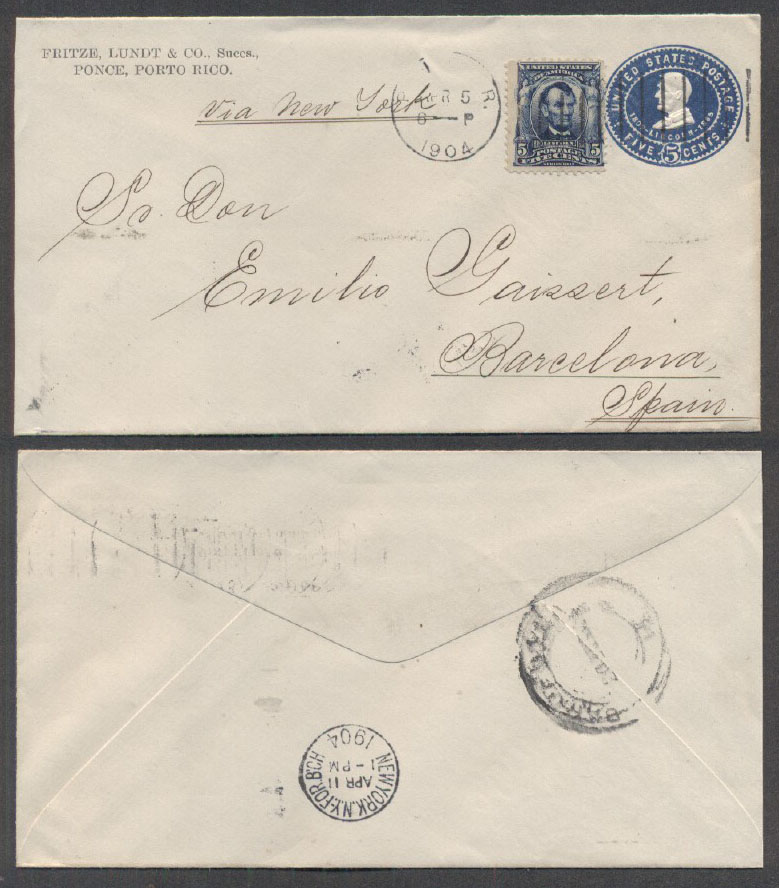 FRITZE, LUNDT & CO., Succs.,
PONCE, PORTO RICO.
Via New York
R.
5
6 - P
1904
UNITED STATES
OF AMERICA
5 5
POSTAGE
FIVE CENTS
UNITED STATES POSTAGE
FIVE 5 CENTS
Sr. Don
Emilio Gaissert,
Barcelona,
Spain.
NEW YORK, N.Y. FOR. B'CH
APR 11
1 - PM
1904